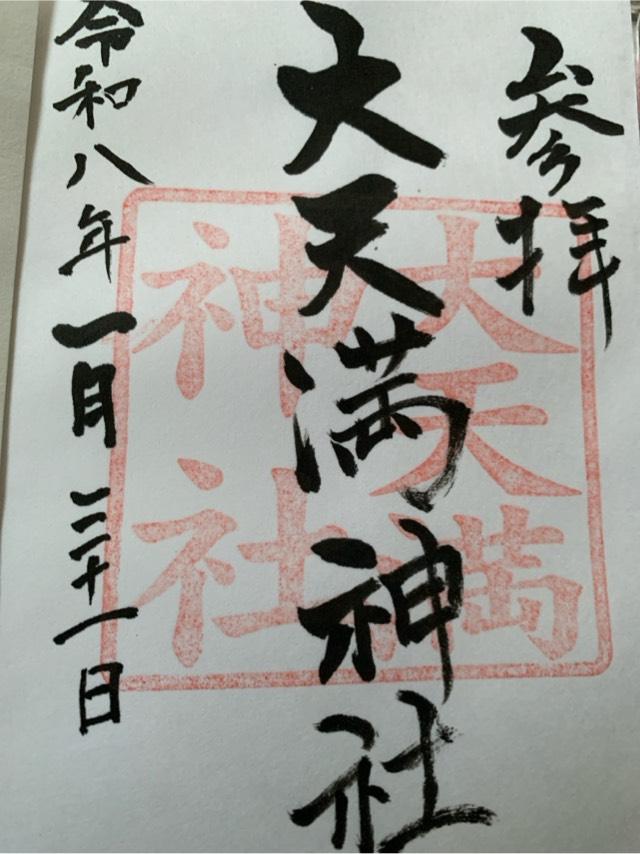 参拝
大天満神社
令和八年一月三十一日
大天満
神社